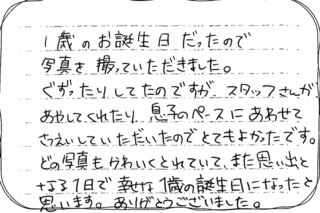 1歳のお誕生日だったので
写真を撮っていただきました。
ぐずったりしてたのですが、スタッフさんが
あやしてくれたり、息子のペースにあわせて
さつえいしていただいたのでとてもよかったです。
どの写真もかわいくとれていて、また思い出と
なる1日で幸せな1歳の誕生日になったと
思います。ありがとうございました。